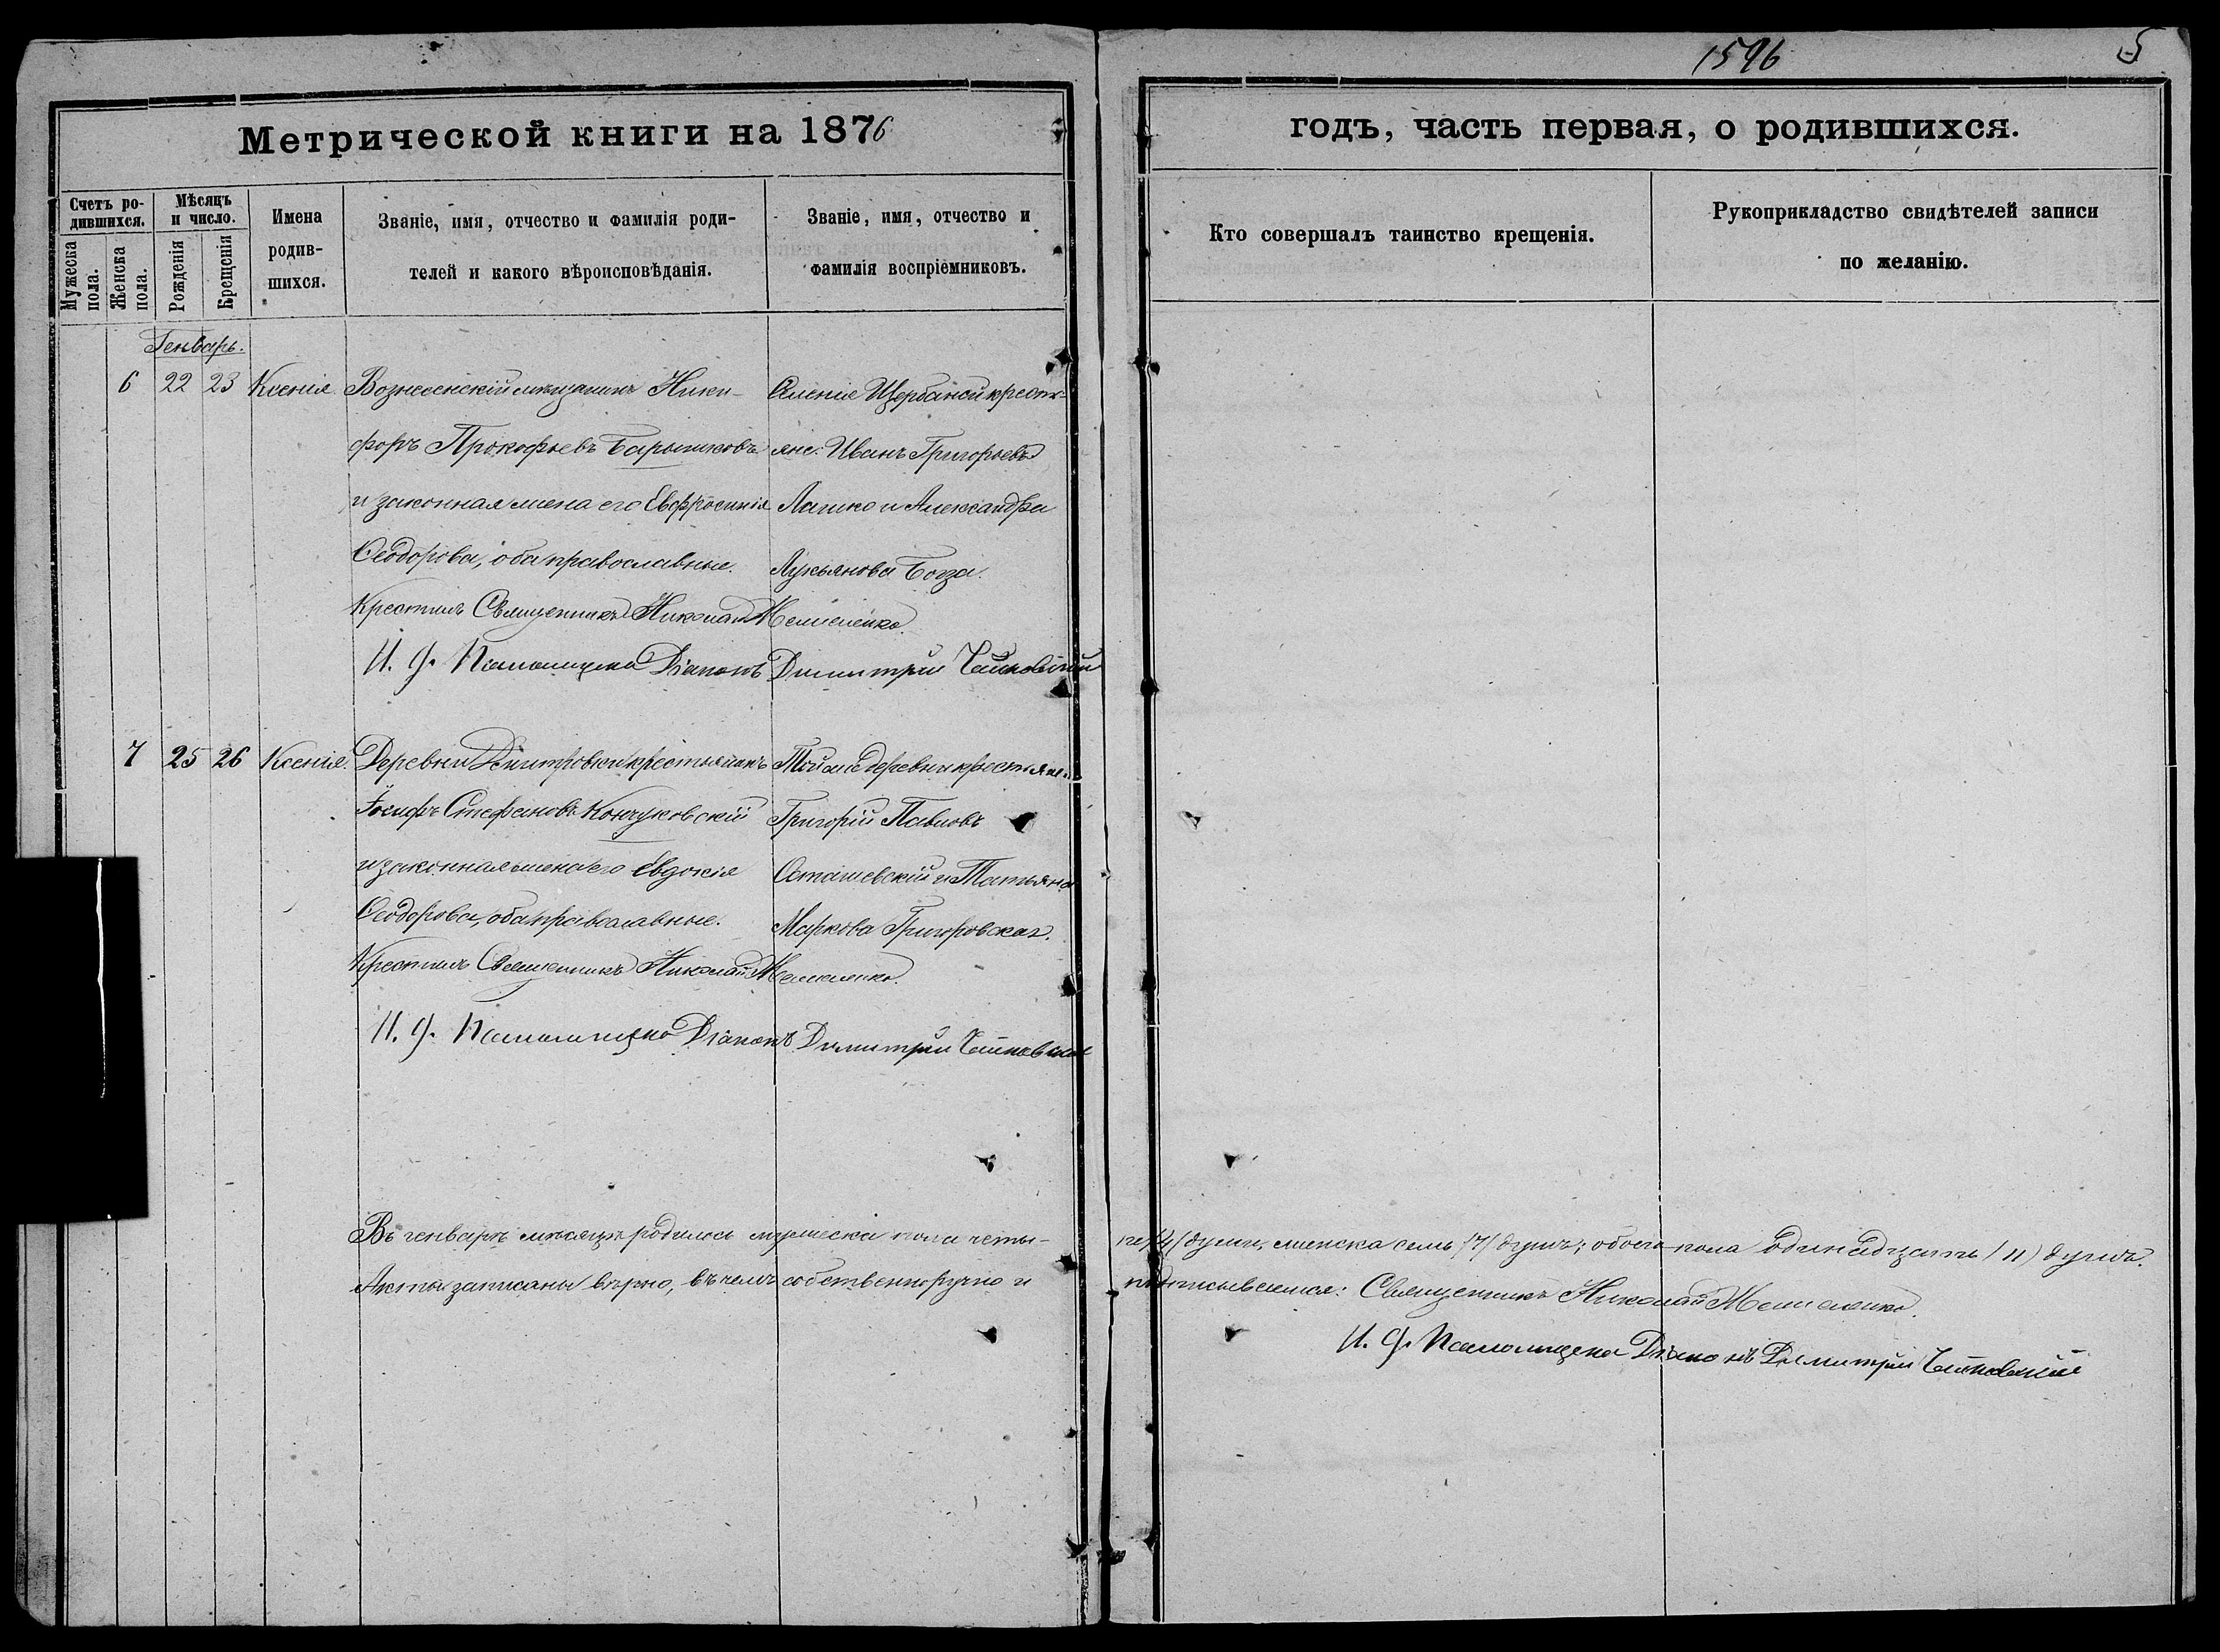 1596
5
Метрической книги на 1876
годъ, часть первая, о родившихся.
Счетъ ро-
дившихся.
Мужеска пола.
Женска пола.
Мѣсяцъ
и число.
Рожденія
Крещенія
Имена
родив-
шихся.
Званіе, имя, отчество и фамилія роди-
телей и какого вѣроисповѣданія.
Званіе, имя, отчество и
фамилія воспріемниковъ.
Кто совершалъ таинство крещенія.
Рукоприкладство свидѣтелей записи
по желанію.
Генварь.
6 22 23 Ксенія. Вознесенскій мѣщанинъ Ники-
форъ Прокофьевъ Барышковъ
и законная жена его Евфросинія
Ѳеодорова, оба православные.
Селенія Щербаной крестья-
яне: Иванъ Григорьевъ
Лашко и Александра
Лукьянова Боза.
Крестилъ Священникъ Николай
И. д. Псаломщика Діаконъ Димитрій
7 25 26 Ксенія. Деревни Дмитровки крестьянинъ
Іосифъ Стефановъ Кончуковскій
и законная жена его Евдокія
Ѳеодорова, оба православные.
Той же деревни крестьяне:
Григорій Павловъ
Осташевскій и Татьяна
Маркова Григоровская.
Крестилъ Священникъ Николай
И. д. Псаломщика Діаконъ Димитрій
Въ генварѣ мѣсяцѣ родилось мужеска пола четы-
ре /4/ души, женска семь /7/ душъ; обоего пола одинадцать /11/ душъ.
Акты записаны вѣрно, въ чемъ собственноручно и
подписываемся: Священникъ Николай
И. д. Псаломщика Діаконъ Димитрій